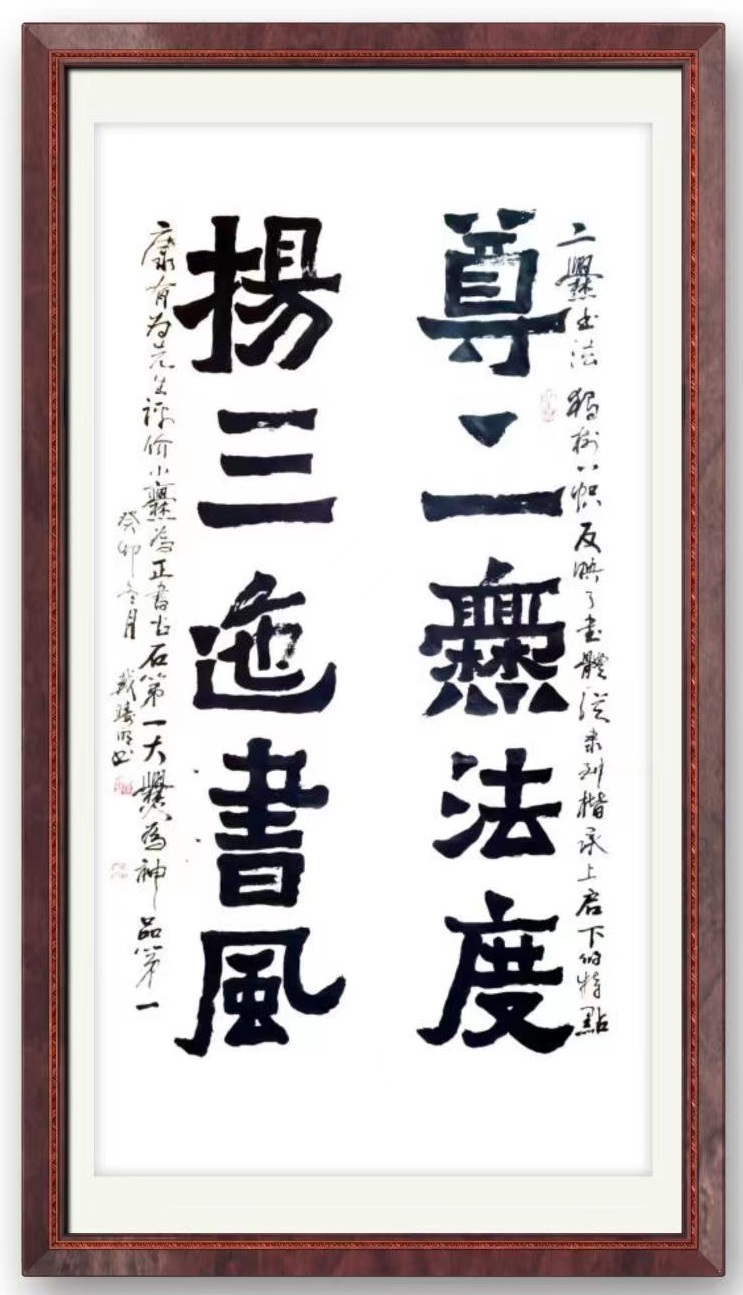 二爨书法獨树一帜反映了書體從隶到楷承上启下的特點
尊二爨法度
揚三迤書風
康有为先生评价小爨為正書古石第一大爨為神品第一
癸卯冬月
戴明书